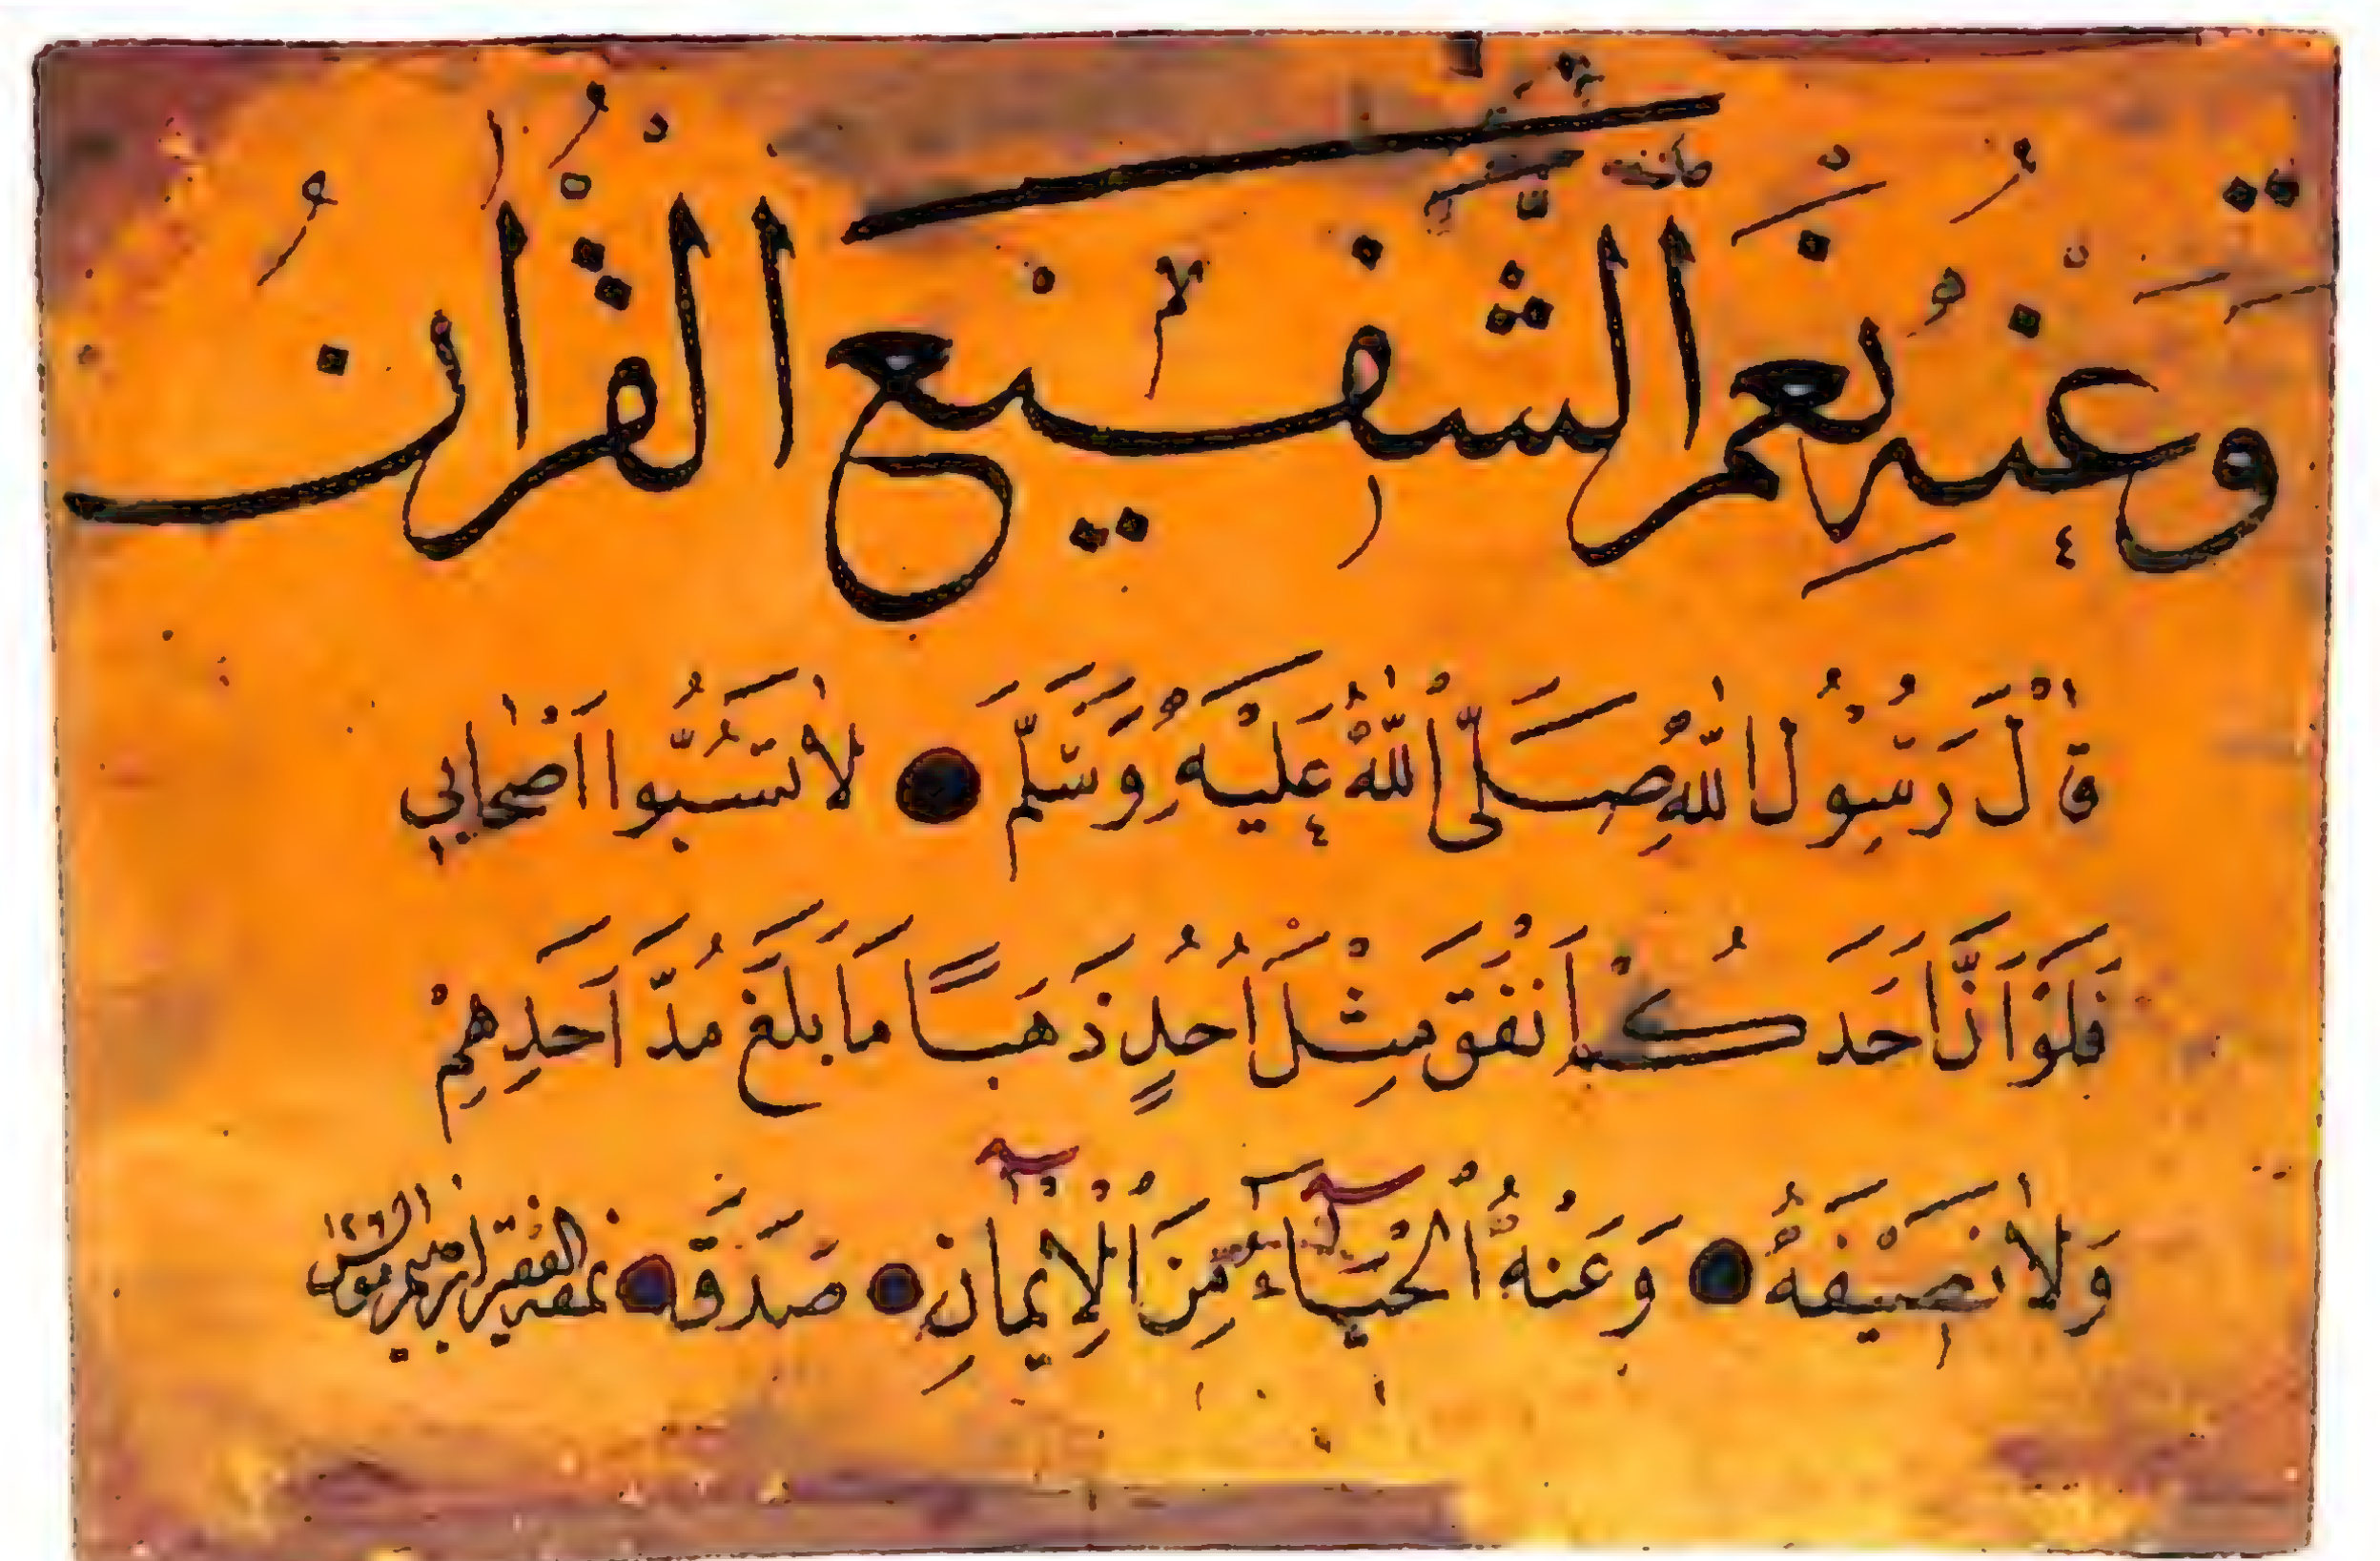 وَعَنْهُ نِعْمَ الشَّفِيعُ الْقُرْاٰنُ
قَالَ رَسُولُ اللّٰهِ صَلَّى اللّٰهُ عَلَيْهِ وَسَلَّمَ ● لَا تَسُبُّوا اَصْحَابِي
فَلَوْ اَنَّ اَحَدَكُمْ اَنْفَقَ مِثْلَ اُحُدٍ ذَهَبًا مَا بَلَغَ مُدَّ اَحَدِهِمْ
وَلَا نَصِيْفَهُ ● وَعَنْهُ الْحَيَاءُ مِنَ الْاِيْمَانِ ● صَدَقَ ● نمقه الفقير ابراهيم